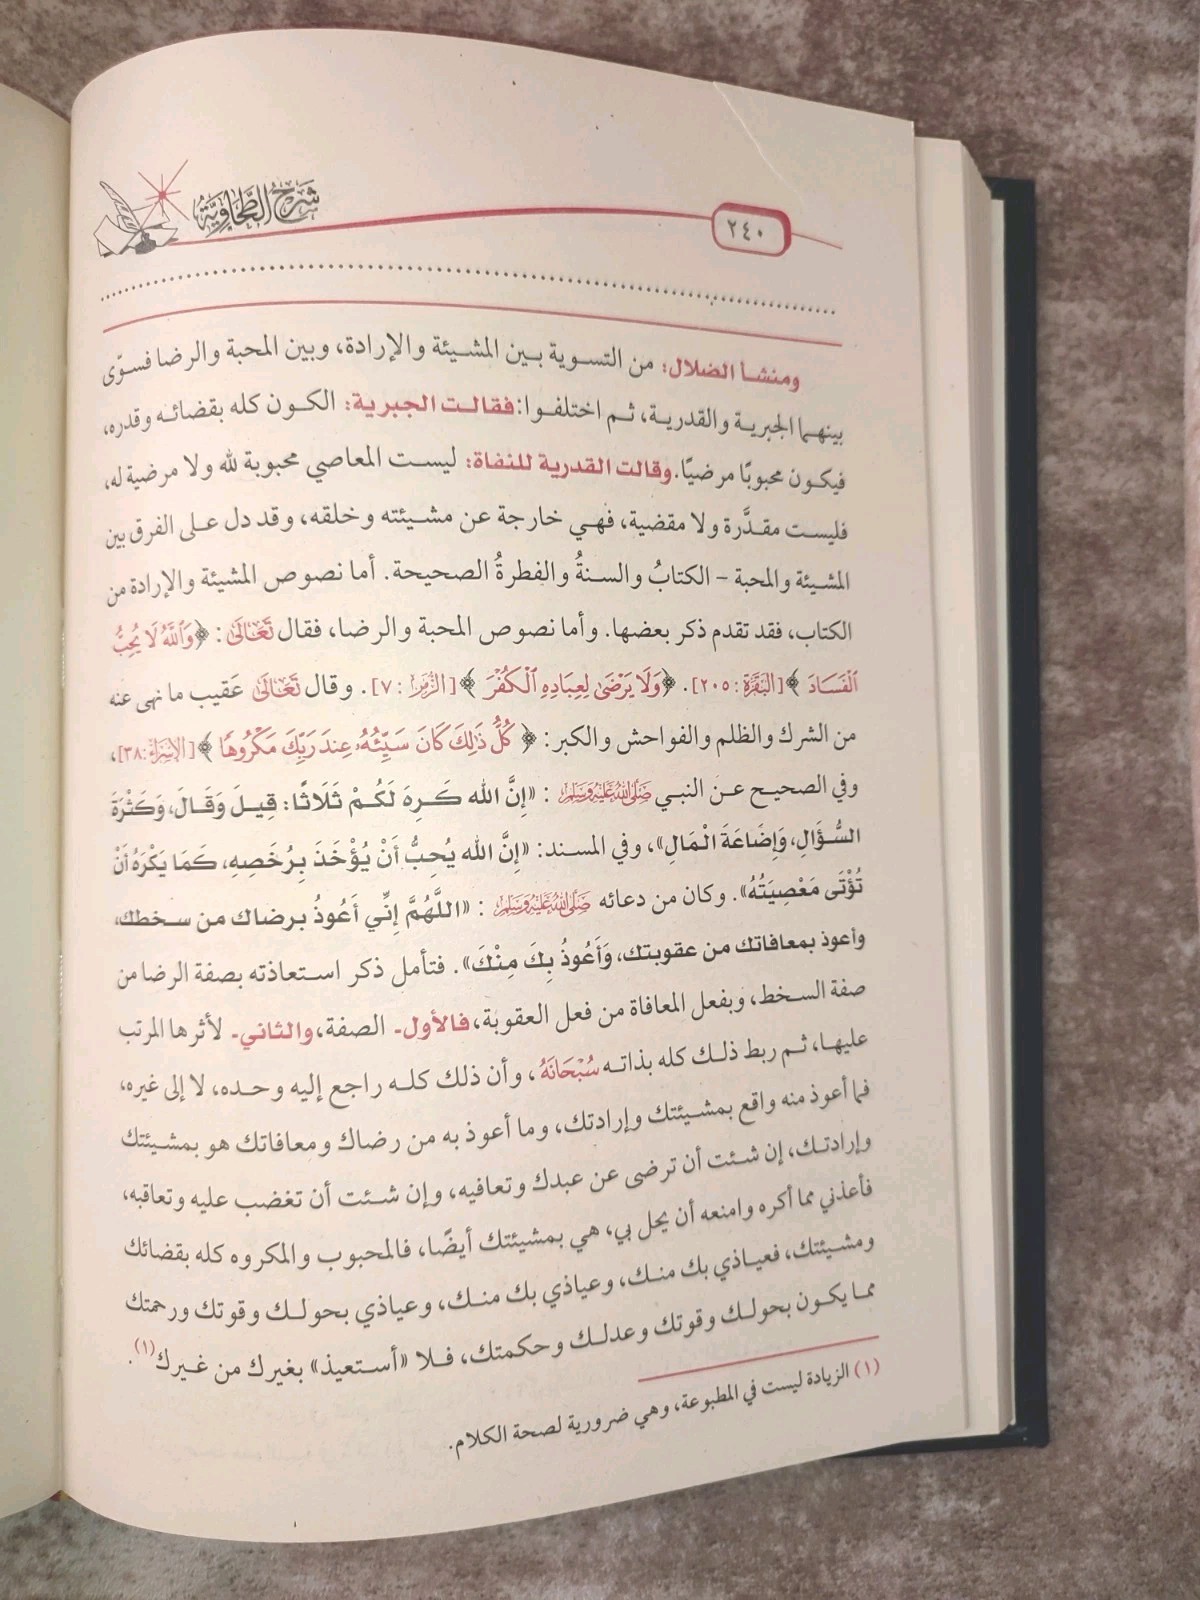 شرح الطحاوية
٢٤٠
ومنشأ الضلال: من التسوية بين المشيئة والإرادة، وبين المحبة والرضا فسوّى
بينهما الجبرية والقدرية، ثم اختلفوا: فقالت الجبرية: الكون كله بقضائه وقدره،
فيكون محبوبًا مرضيًا. وقالت القدرية للنفاة: ليست المعاصي محبوبة لله ولا مرضية له،
فليست مقدَّرة ولا مقضية، فهي خارجة عن مشيئته وخلقه، وقد دل على الفرق بين
المشيئة والمحبة – الكتابُ والسنةُ والفطرةُ الصحيحة. أما نصوص المشيئة والإرادة من
الكتاب، فقد تقدم ذكر بعضها. وأما نصوص المحبة والرضا، فقال تَعَالَىٰ: ﴿وَٱللَّهُ لَا يُحِبُّ
ٱلْفَسَادَ﴾ [البَقَرَة: ٢٠٥]. ﴿وَلَا يَرْضَىٰ لِعِبَادِهِ ٱلْكُفْرَ﴾ [الزُّمَر: ٧]. وقال تَعَالَىٰ عَقيب ما نهى عنه
من الشرك والظلم والفواحش والكبر: ﴿كُلُّ ذَٰلِكَ كَانَ سَيِّئُهُۥ عِندَ رَبِّكَ مَكْرُوهًا﴾ [الإسْرَاء: ٣٨]،
وفي الصحيح عن النبي صَلَّى اللَّهُ عَلَيْهِ وَسَلَّمَ: «إِنَّ الله كَرِهَ لَكُمْ ثَلَاثًا: قِيلَ وَقَالَ، وَكَثْرَةَ
السُّؤَالِ، وَإِضَاعَةَ الْمَالِ»، وفي المسند: «إِنَّ الله يُحِبُّ أَنْ يُؤْخَذَ بِرُخَصِهِ، كَمَا يَكْرَهُ أَنْ
تُؤْتَى مَعْصِيَتُهُ». وكان من دعائه صَلَّى اللَّهُ عَلَيْهِ وَسَلَّمَ: «اللَّهُمَّ إِنِّي أَعُوذُ برضاك من سخطك،
وأعوذ بمعافاتك من عقوبتك، وَأَعُوذُ بِكَ مِنْكَ». فتأمل ذكر استعاذته بصفة الرضا من
صفة السخط، وبفعل المعافاة من فعل العقوبة، فالأول- الصفة، والثاني- لأثرها المرتب
عليها، ثم ربط ذلك كله بذاته سُبْحَانَهُ، وأن ذلك كله راجع إليه وحده، لا إلى غيره،
فما أعوذ منه واقع بمشيئتك وإرادتك، وما أعوذ به من رضاك ومعافاتك هو بمشيئتك
وإرادتك، إن شئت أن ترضى عن عبدك وتعافيه، وإن شئت أن تغضب عليه وتعاقبه،
فأعذني مما أكره وامنعه أن يحل بي، هي بمشيئتك أيضًا، فالمحبوب والمكروه كله بقضائك
ومشيئتك، فعياذي بك منك، وعياذي بك منك، وعياذي بحولك وقوتك ورحمتك
مما يكون بحولك وقوتك وعدلك وحكمتك، فلا «أستعيذ» بغيرك من غيرك(١).
(١) الزيادة ليست في المطبوعة، وهي ضرورية لصحة الكلام.